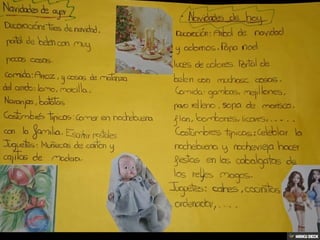 Navidades de ayer
Decoración: tiras de navidad,
portal de belen con muy
pocas cosas.
Comida: Arroz, y cosas de matanza
del cerdo: lomo, morcilla,
Naranjas, batatas
Costumbres típicas: Comer en nochebuena
con la familia. Escribir postales
Juguetes: Muñecas de cartón y
cajitas de madera.
Navidades de hoy
Decoración: Arbol de navidad
y adornos. Papa noel
luces de colores. Portal de
belen con muchas cosas.
Comida: gambas, mejillones,
pavo relleno, sopa de marisco,
flan, bombones, licores.....
Costumbres típicas: Celebrar la
nochebuena y nochevieja hacer
fiestas en las cabalgatas de
los reyes magos.
Juguetes: coches, cocinitas,
ordenador, ....